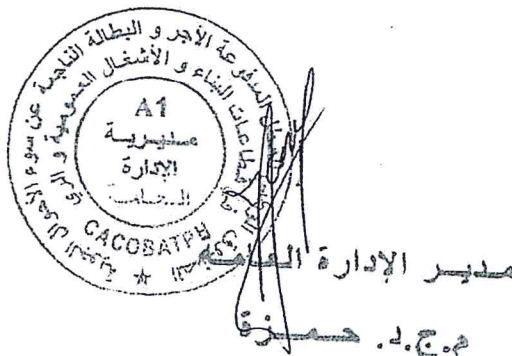 المدفوعة الأجر و البطالة الناجمة عن سوء الأحوال الجوية
قطاعات البناء و الأشغال العمومية و الري
A1
مديرية
الإدارة
العامة
CACOBATPH
مدير الإدارة العامة
م.ج.د. حمزة